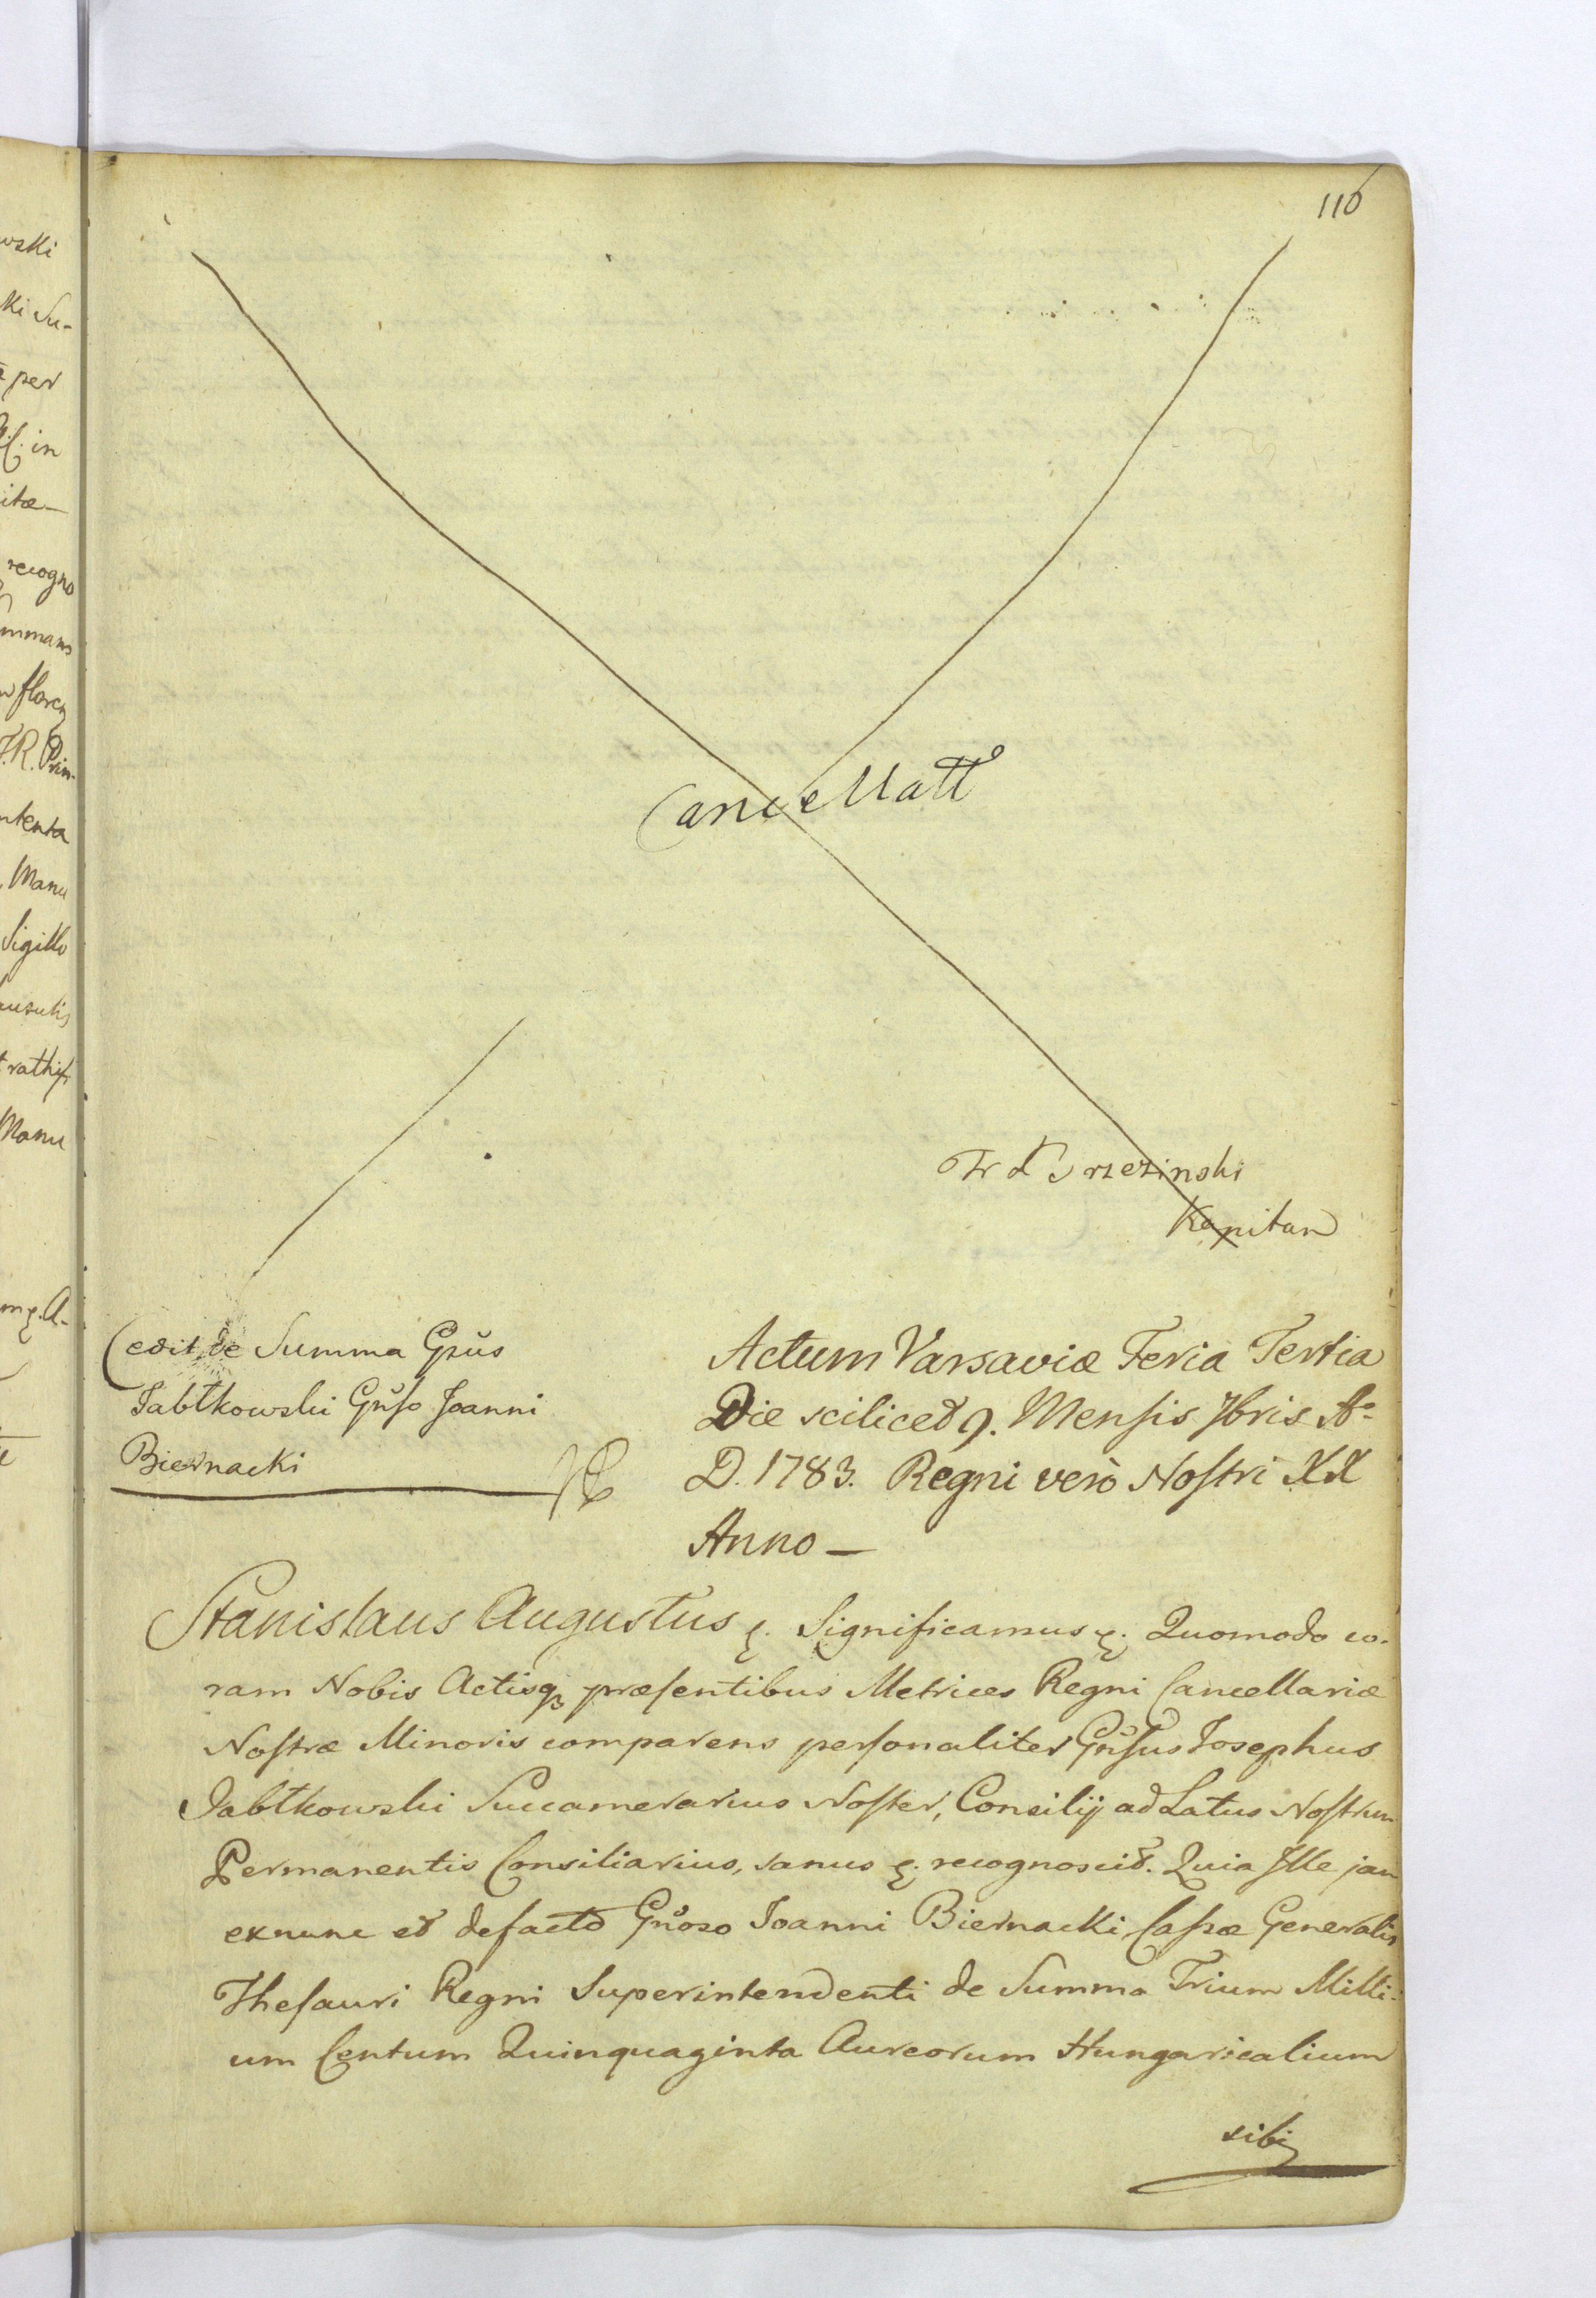 110
Cancellatt
Kapitan
Cedit de Summa Gsus
Jabłkowski Gnso Joanni
Biernacki
Actum Varsaviæ Feria Tertia
Die scilicet 9. Mensis 7bris Ao
D. 1783. Regni verò Nostri XX
Anno —
Stanislaus Augustus &. Significamus &. Quomodo co-
ram Nobis Actisq præsentibus Metrices Regni Cancellariæ
Nostræ Minoris comparens personaliter Gnsus Josephus
Jabłkowski Succamerarius Noster, Consilij ad Latus Nostrum
Permanentis Consiliarius, sanus &. recognoscit. Quia Ille jam
exnunc et defacto Gnoso Joanni Biernacki Cassæ Generalis
Thesauri Regni Superintendenti de Summa Trium Milli-
um Centum Quinquaginta Aureorum Hungaricalium
sibi
wski
ki Su-
per
in
itæ —
recogno
mmam
floren
T.R. Prin-
ntenta
Manu
Sigillo
ausulis
rathif
Manu